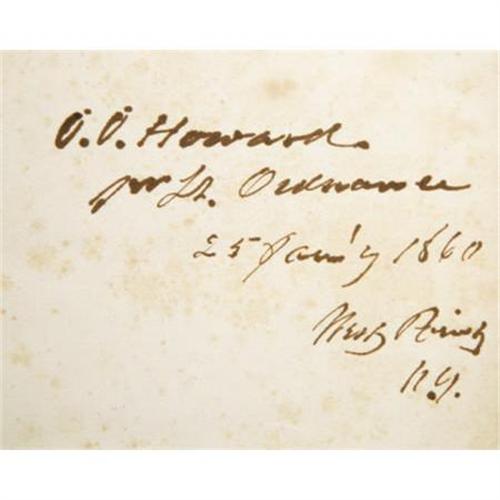 O. O. Howard.
1st Lt. Ordnance
25 Jan'y 1860
West Point
N.Y.